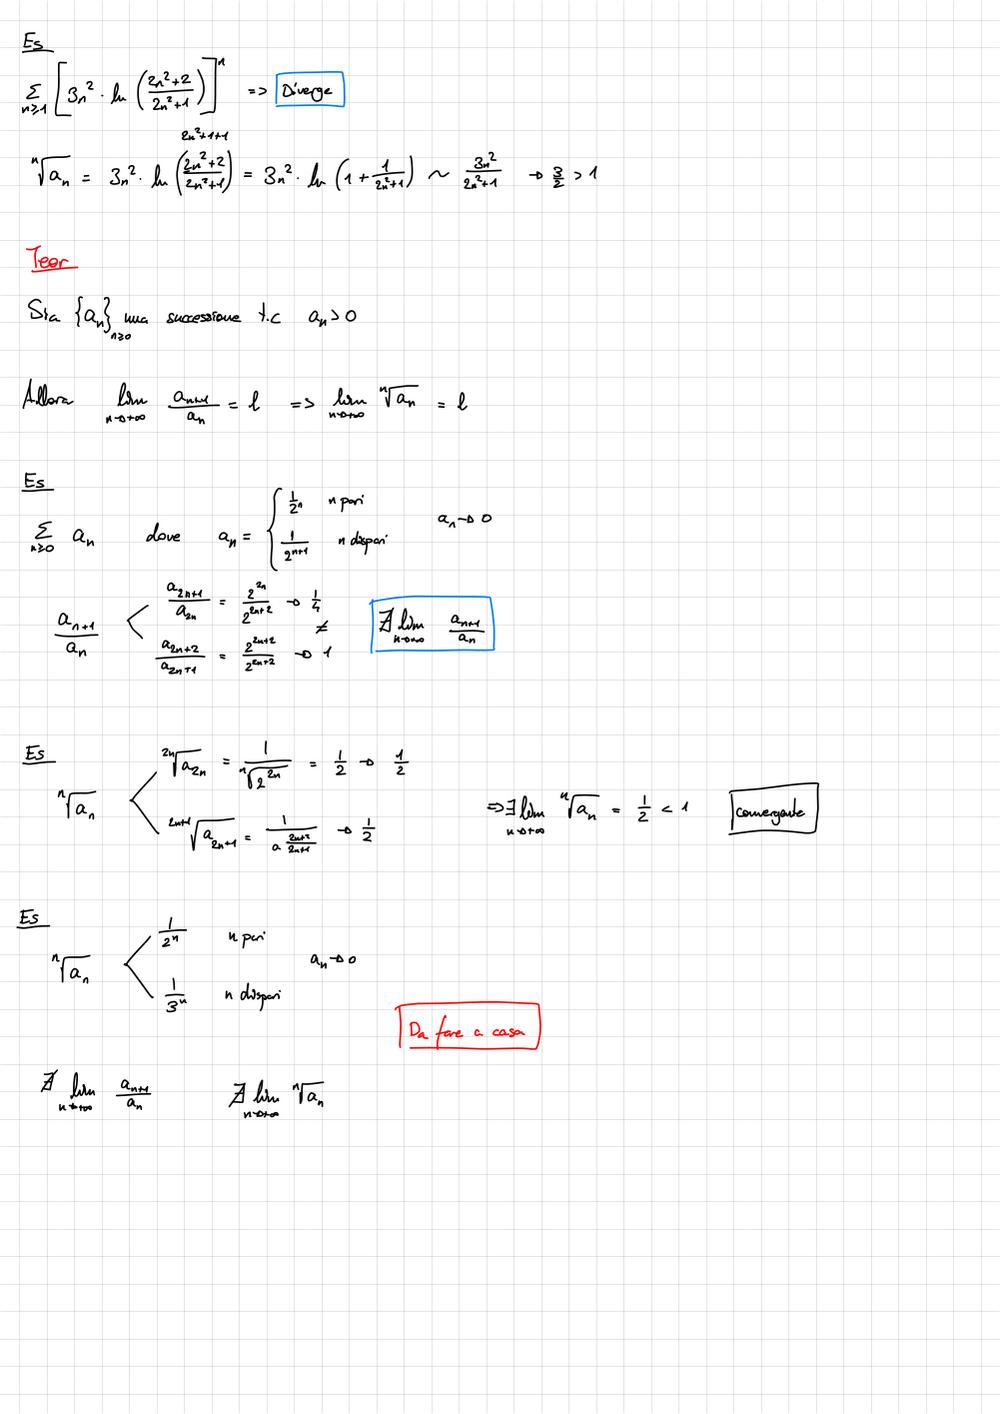 Es
Σ_{n≥1} [3n² · ln((2n²+2)/(2n²+1))]^n => Diverge
2n²+1+1
ⁿ√a_n = 3n² · ln((2n²+2)/(2n²+1)) = 3n² · ln(1 + 1/(2n²+1)) ~ 3n²/(2n²+1) → 3/2 > 1
Teor
Sia {a_n}_{n≥0} una successione t.c a_n > 0
Allora lim_{n→+∞} a_{n+1}/a_n = l => lim_{n→+∞} ⁿ√a_n = l
Es
Σ_{n≥0} a_n dove a_n = { 1/2^n n pari a_n → 0
1/2^{n+1} n dispari
a_{n+1}/a_n < a_{2n+1}/a_{2n} = 2^{2n}/2^{2n+2} → 1/4
≠ ∄ lim_{n→+∞} a_{n+1}/a_n
a_{2n+2}/a_{2n+1} = 2^{2n+2}/2^{2n+2} → 1
Es
ⁿ√a_n < ²ⁿ√a_{2n} = 1/ⁿ√2^{2n} = 1/2 → 1/2
²ⁿ⁺¹√a_{2n+1} = 1/a^{(2n+2)/(2n+1)} → 1/2
=> ∃ lim_{n→+∞} ⁿ√a_n = 1/2 < 1 convergente
Es
ⁿ√a_n < 1/2^n n pari
a_n → 0
1/3^n n dispari
Da fare a casa
∄ lim_{n→+∞} a_{n+1}/a_n ∄ lim_{n→+∞} ⁿ√a_n